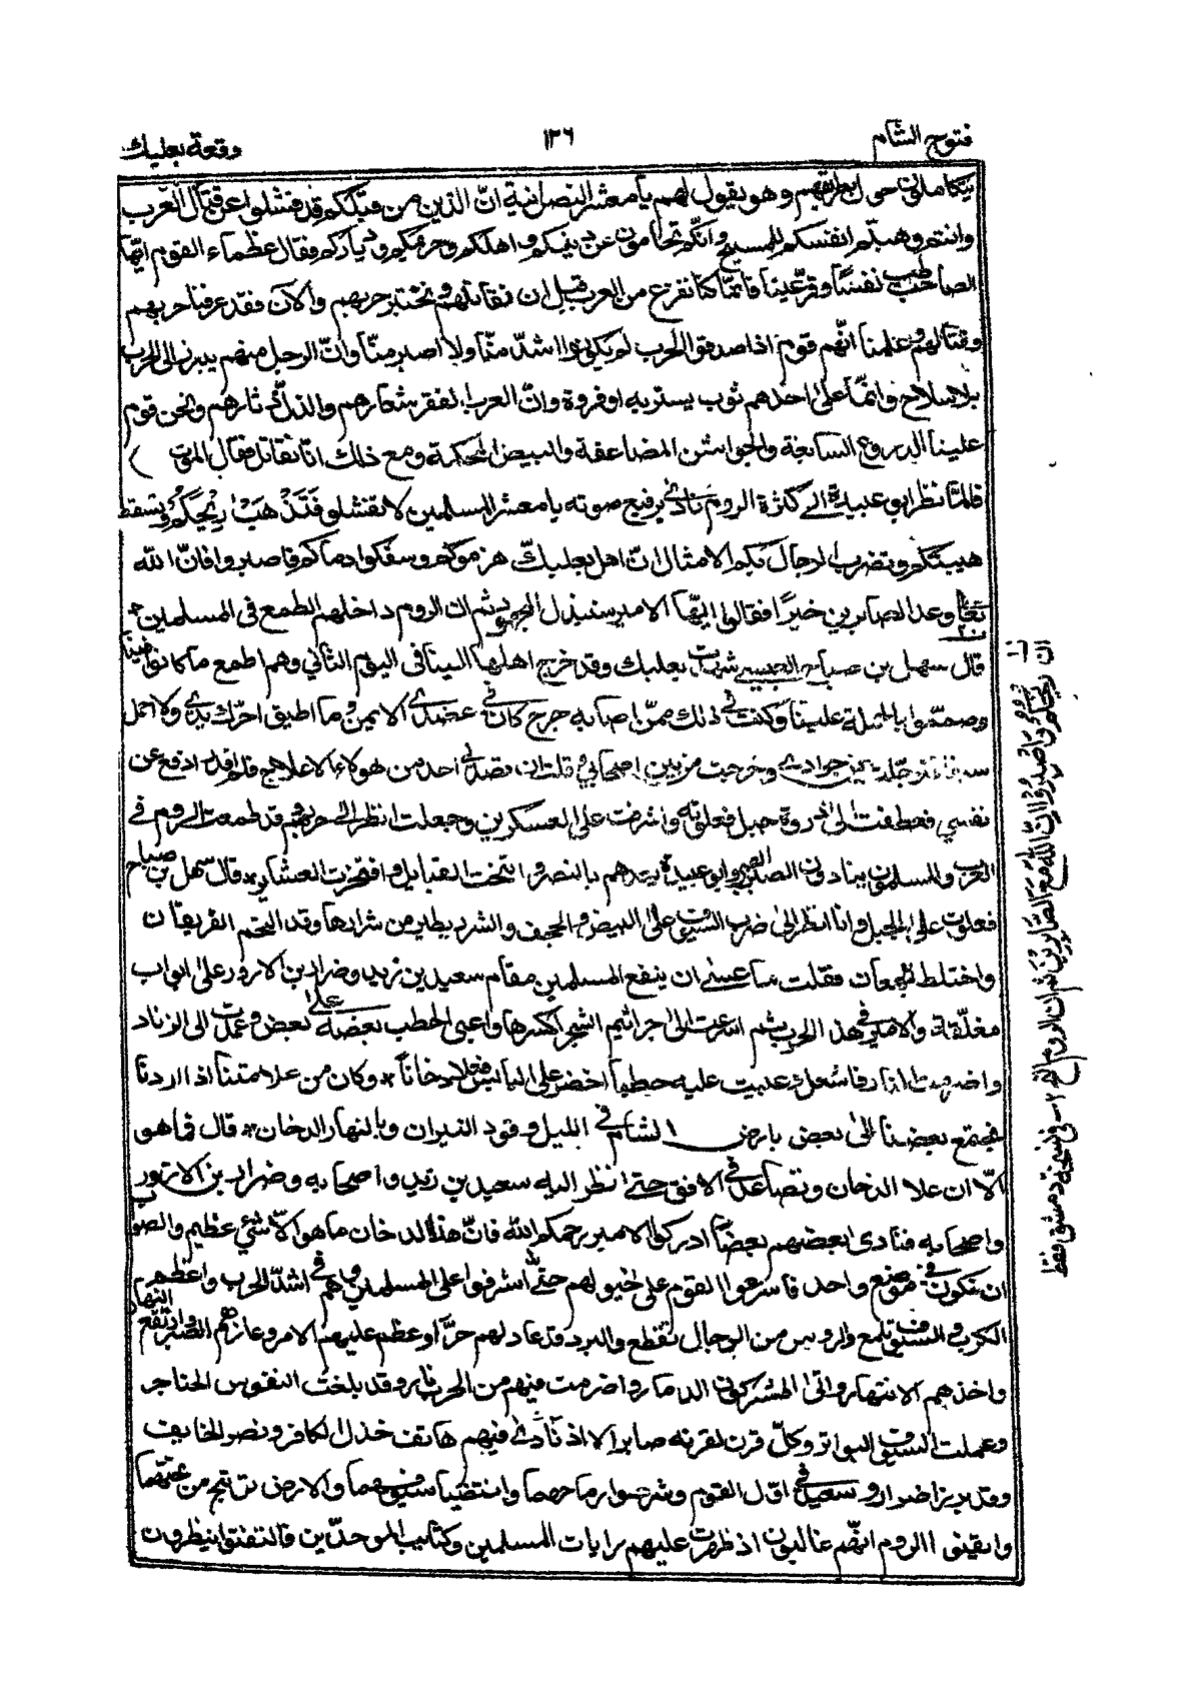 فتوح الشام
١٣٦
وقعة بعلبك
يتكاملون حول بطريقهم وهو يقول لهم يا معشر النصرانية انّ الذين من قبلكم قد فشلوا عن قتال العرب
وانتم وهبتم انفسكم للمسيح وانكم تحامون عن دينكم واهلكم وحرمكم ودياركم فقال عظماء القوم ايّها
الصاحب طب نفسًا وقرّ عينًا فانّما كنا نفزع من العرب قبل ان نقاتلهم ونختبر حربهم والآن فقد عرفنا حربهم
وقتالهم وعلمنا انّهم قوم اذا صدقوا الحرب لم يكونوا اشدّ منّا ولا اصبر منّا وانّ الرجل منهم يبرز الى الحرب
بلا سلاح وانمّا على احدهم ثوب يستر به او فروة وانّ العرب الفقر شعارهم والذلّ دثارهم ونحن قوم
علينا الدروع السابغة والجواشن المضاعفة والبيض المحكمة ومع ذلك انا نقاتل فقال الموت
فلمّا نظر ابو عبيدة الى كثرة الروم نادى برفيع صوته يا معشر المسلمين لا تفشلوا فَتَذْهَبَ رِيْحُكُمْ وتسقط
هيبتكم وتضرب الرجال بكم الامثال انّ اهل بعلبك هزموكم وسفكوا دماكم فاصبروا فانّ الله
تعالى وعد الصابرين خيرًا فقالوا ايّها الامير سنبذل المجهود ثم ان الروم داخلهم الطمع فى المسلمين
قال سهل بن صباح العبسي شهدت بعلبك وقد خرج اهلها الينا فى اليوم الثاني وهم اطمع ما كانوا فينا
وصمّموا بالحملة علينا وكنت في ذلك ممن اصابه جرح كان في عضدي الايمن وما اطيق احرّك يدي ولا احمل
خرجت من بين اصحابي وقلت ان قصدني احد من هؤلاء الاعلاج فلم اقدر ادفع عن
نفسي فعطفت الى ذروة جبل فعلوته واشرفت على العسكرين وجعلت انظر الى حربهم قد طمعت الروم في
العرب والمسلمون ينادون الصبر الصبر وابو عبيدة يعدهم بالنصر وانتخت القبايل وافتخرت العشاير قال سهل بن صباح
فعلوت على الجبل وانا انظر الى ضرب السيوف على البيض والحجف والشرر يطير من شرارها وقد التحم الفريقان
واختلط الجمعان فقلت ما عسى ان ينفع المسلمين مقام سعيد بن زيد وضرار بن الازور على ابواب
مغلّقة والامير في هذا الحرب ثم اسرعت الى جراثيم الشجر اكسرها واعبي الحطب بعضه على بعض وعمدت الى الزناد
واضرمت النار فاشعل وعبيت عليه حطبا اخضر على اليابس فعلا دخانًا وكان من علامتنا اذا اردنا
يجتمع بعضنا الى بعض بارض الشام في الليل وقود النيران وبالنهار الدخان قال فما هو
الّا ان علا الدخان وتصاعد في الافق حتى نظر اليه سعيد بن زيد واصحابه وضرار بن الازور
واصحابه فنادى بعضهم بعضًا ادركوا الامير رحمكم الله فانّ هذا الدخان ما هو الّا شيء عظيم والصواب
ان نكون في موضع واحد فاسرعوا القوم على خيولهم حتى اشرفوا على المسلمين وهم في اشدّ الحرب واعظم
الكرب والسيوف تلمع والروس من الرجال تقطع والبرد قد عاد لهم حرًّا وعظم عليهم الامر وعازهم الصبر وارتفع النهار
واخذهم الانتهار واتى المشركون الدمار واضرمت منهم من الحرب نار وقد بلغت النفوس الحناجر
وعملت السيوف البواتر وكلّ قرن لقرنه صابر الا اذ نادى فيهم هاتف خذل الكافر ونصر الخايف
وقد برز ضرار وسعيد في اوّل القوم وشرعوا رماحهما وانتضيا سيوفهما والارض ترتج من تحتهما
وايقنوا الروم انهم غالبون اذ ظهرت عليهم رايات المسلمين وكتايب الموحدّين فالتفتوا ينظرون
ن ١
ريحكم واصبروا ان الله مع الصابرين ثم ان الروم الخ ٢ـ في نسخة دمشق فقط